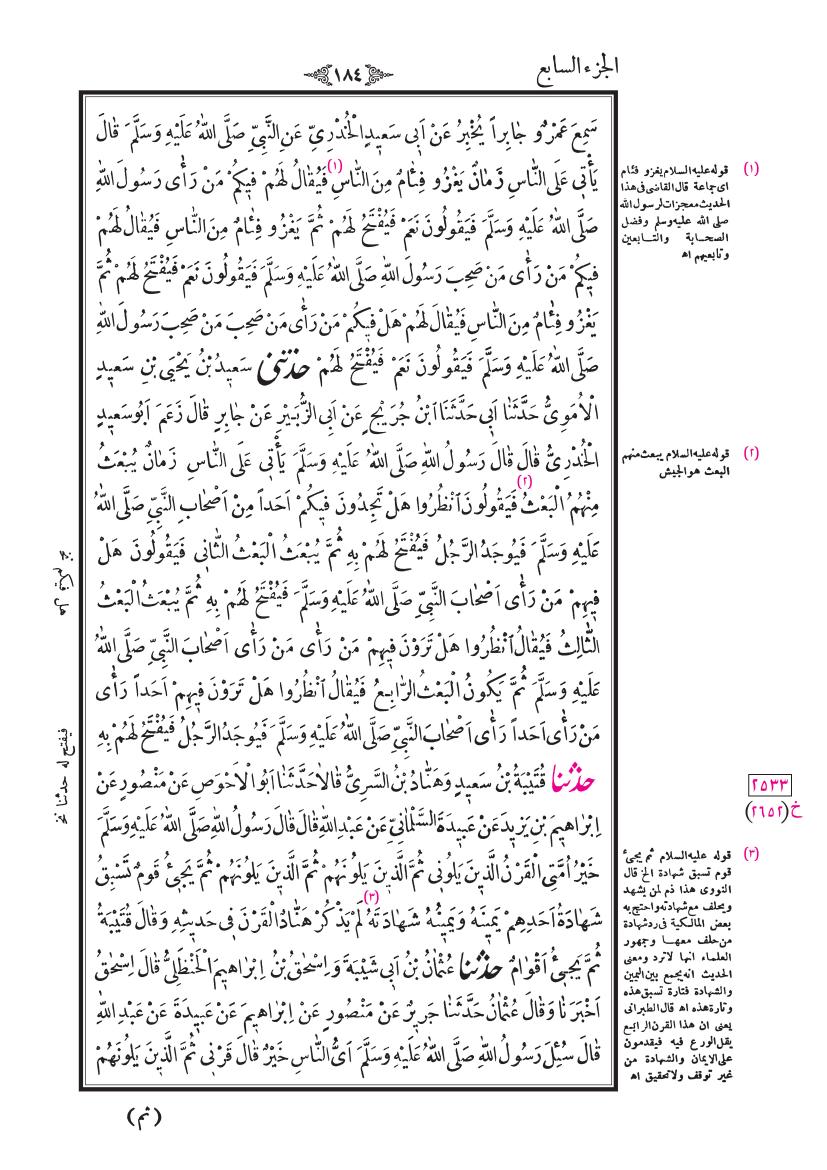 الجزء السابع
١٨٤
سَمِعَ عَمْرٌو جَابِراً يُخْبِرُ عَنْ اَبِى سَعِيدٍ الْخُدْرِىِّ عَنِ النَّبِىِّ صَلَّى اللّٰهُ عَلَيْهِ وَسَلَّمَ قَالَ
يَأْتِى عَلَى النَّاسِ زَمَانٌ يَغْزُو فِئَامٌ مِنَ النَّاسِ (١) فَيُقَالُ لَهُمْ فِيكُمْ مَنْ رَأَى رَسُولَ اللّٰهِ
صَلَّى اللّٰهُ عَلَيْهِ وَسَلَّمَ فَيَقُولُونَ نَعَمْ فَيُفْتَحُ لَهُمْ ثُمَّ يَغْزُو فِئَامٌ مِنَ النَّاسِ فَيُقَالُ لَهُمْ
فِيكُمْ مَنْ رَأَى مَنْ صَحِبَ رَسُولَ اللّٰهِ صَلَّى اللّٰهُ عَلَيْهِ وَسَلَّمَ فَيَقُولُونَ نَعَمْ فَيُفْتَحُ لَهُمْ ثُمَّ
يَغْزُو فِئَامٌ مِنَ النَّاسِ فَيُقَالُ لَهُمْ هَلْ فِيكُمْ مَنْ رَأَى مَنْ صَحِبَ مَنْ صَحِبَ رَسُولَ اللّٰهِ
صَلَّى اللّٰهُ عَلَيْهِ وَسَلَّمَ فَيَقُولُونَ نَعَمْ فَيُفْتَحُ لَهُمْ حَدَّثَنِى سَعِيدُ بْنُ يَحْيَى بْنِ سَعِيدٍ
الْاُمَوِىُّ حَدَّثَنَا اَبِى حَدَّثَنَا ابْنُ جُرَيْجٍ عَنْ اَبِى الزُّبَيْرِ عَنْ جَابِرٍ قَالَ زَعَمَ اَبُو سَعِيدٍ
الْخُدْرِىُّ قَالَ قَالَ رَسُولُ اللّٰهِ صَلَّى اللّٰهُ عَلَيْهِ وَسَلَّمَ يَأْتِى عَلَى النَّاسِ زَمَانٌ يُبْعَثُ
مِنْهُمُ الْبَعْثُ (٢) فَيَقُولُونَ انْظُرُوا هَلْ تَجِدُونَ فِيكُمْ اَحَداً مِنْ اَصْحَابِ النَّبِىِّ صَلَّى اللّٰهُ
عَلَيْهِ وَسَلَّمَ فَيُوجَدُ الرَّجُلُ فَيُفْتَحُ لَهُمْ بِهِ ثُمَّ يُبْعَثُ الْبَعْثُ الثَّانِى فَيَقُولُونَ هَلْ
فِيهِمْ مَنْ رَأَى اَصْحَابَ النَّبِىِّ صَلَّى اللّٰهُ عَلَيْهِ وَسَلَّمَ فَيُفْتَحُ لَهُمْ بِهِ ثُمَّ يُبْعَثُ الْبَعْثُ
الثَّالِثُ فَيُقَالُ انْظُرُوا هَلْ تَرَوْنَ فِيهِمْ مَنْ رَأَى مَنْ رَأَى اَصْحَابَ النَّبِىِّ صَلَّى اللّٰهُ
عَلَيْهِ وَسَلَّمَ ثُمَّ يَكُونُ الْبَعْثُ الرَّابِعُ فَيُقَالُ انْظُرُوا هَلْ تَرَوْنَ فِيهِمْ اَحَداً رَأَى
مَنْ رَأَى اَحَداً رَأَى اَصْحَابَ النَّبِىِّ صَلَّى اللّٰهُ عَلَيْهِ وَسَلَّمَ فَيُوجَدُ الرَّجُلُ فَيُفْتَحُ لَهُمْ بِهِ
حَدَّثَنَا قُتَيْبَةُ بْنُ سَعِيدٍ وَهَنَّادُ بْنُ السَّرِىِّ قَالَا حَدَّثَنَا اَبُو الْاَحْوَصِ عَنْ مَنْصُورٍ عَنْ
اِبْرَاهِيمَ بْنِ يَزِيدَ عَنْ عَبِيدَةَ السَّلْمَانِىِّ عَنْ عَبْدِ اللّٰهِ قَالَ قَالَ رَسُولُ اللّٰهِ صَلَّى اللّٰهُ عَلَيْهِ وَسَلَّمَ
خَيْرُ اُمَّتِى الْقَرْنُ الَّذِينَ يَلُونِى ثُمَّ الَّذِينَ يَلُونَهُمْ ثُمَّ الَّذِينَ يَلُونَهُمْ ثُمَّ يَجِىءُ قَوْمٌ تَسْبِقُ
شَهَادَةُ اَحَدِهِمْ يَمِينَهُ وَيَمِينُهُ شَهَادَتَهُ (٣) لَمْ يَذْكُرْ هَنَّادٌ الْقَرْنَ فِى حَدِيثِهِ وَقَالَ قُتَيْبَةُ
ثُمَّ يَجِىءُ اَقْوَامٌ حَدَّثَنَا عُثْمَانُ بْنُ اَبِى شَيْبَةَ وَاِسْحٰقُ بْنُ اِبْرَاهِيمَ الْحَنْظَلِىُّ قَالَ اِسْحٰقُ
اَخْبَرَنَا وَقَالَ عُثْمَانُ حَدَّثَنَا جَرِيرٌ عَنْ مَنْصُورٍ عَنْ اِبْرَاهِيمَ عَنْ عَبِيدَةَ عَنْ عَبْدِ اللّٰهِ
قَالَ سُئِلَ رَسُولُ اللّٰهِ صَلَّى اللّٰهُ عَلَيْهِ وَسَلَّمَ اَىُّ النَّاسِ خَيْرٌ قَالَ قَرْنِى ثُمَّ الَّذِينَ يَلُونَهُمْ
(ثم)
(١) قوله عليه السلام يغزو فئام
اى جماعة قال القاضى فى هذا
الحديث معجزات لرسول الله
صلى الله عليه وسلم وفضل
الصحابة والتابعين
وتابعيهم اه
(٢) قوله عليه السلام يبعث منهم
البعث هو الجيش
٢٥٣٣
خ (٢٦٥٢)
(٣) قوله عليه السلام ثم يجىء
قوم تسبق شهادة الخ قال
النووى هذا ذم لمن يشهد
ويحلف مع شهادته واحتج به
بعض المالكية فى رد شهادة
من حلف معها وجمهور
العلماء انها لا ترد ومعنى
الحديث انه يجمع بين اليمين
والشهادة فتارة تسبق هذه
وتارة هذه اه قال الطبرانى
يعنى ان هذا القرن الرابع
يقل الورع فيه فيقدمون
على الايمان والشهادة من
غير توقف ولا تحقيق اه
هل فيكم نخ
فيفتح له حدثنا نخ